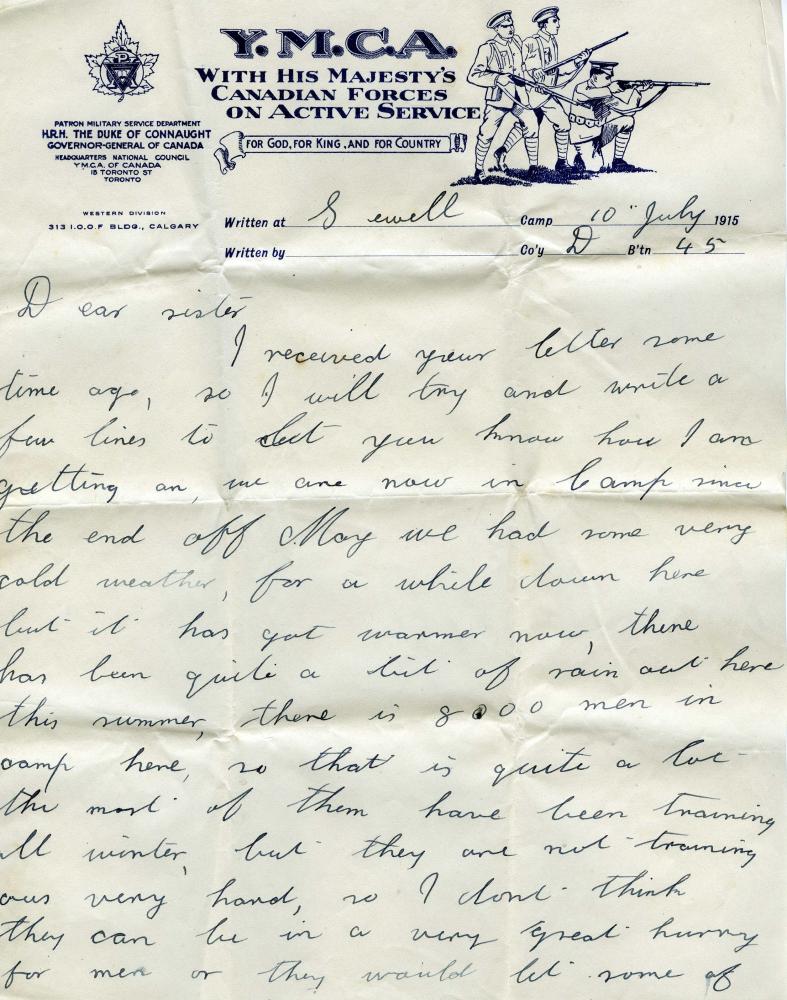 Y.M.C.A.
WITH HIS MAJESTY'S
CANADIAN FORCES
ON ACTIVE SERVICE
FOR GOD, FOR KING, AND FOR COUNTRY
PATRON MILITARY SERVICE DEPARTMENT
H.R.H. THE DUKE OF CONNAUGHT
GOVERNOR-GENERAL OF CANADA
HEADQUARTERS NATIONAL COUNCIL
Y.M.C.A. OF CANADA
15 TORONTO ST
TORONTO
WESTERN DIVISION
313 I.O.O.F BLDG., CALGARY
Written at Sewell Camp 10" July 1915
Written by Co'y D B'tn 45
Dear sister
I received your letter some
time ago, so I will try and write a
few lines to let you know how I am
getting on, we are now in Camp since
the end off May we had some very
cold weather, for a while down here
but it has got warmer now, there
has been quite a bit of rain out here
this summer, there is 8000 men in
camp here, so that is quite a lot
the most of them have been training
all winter, but they are not training
ous very hard, so I dont think
they can be in a very great hurry
for men or they would let some of